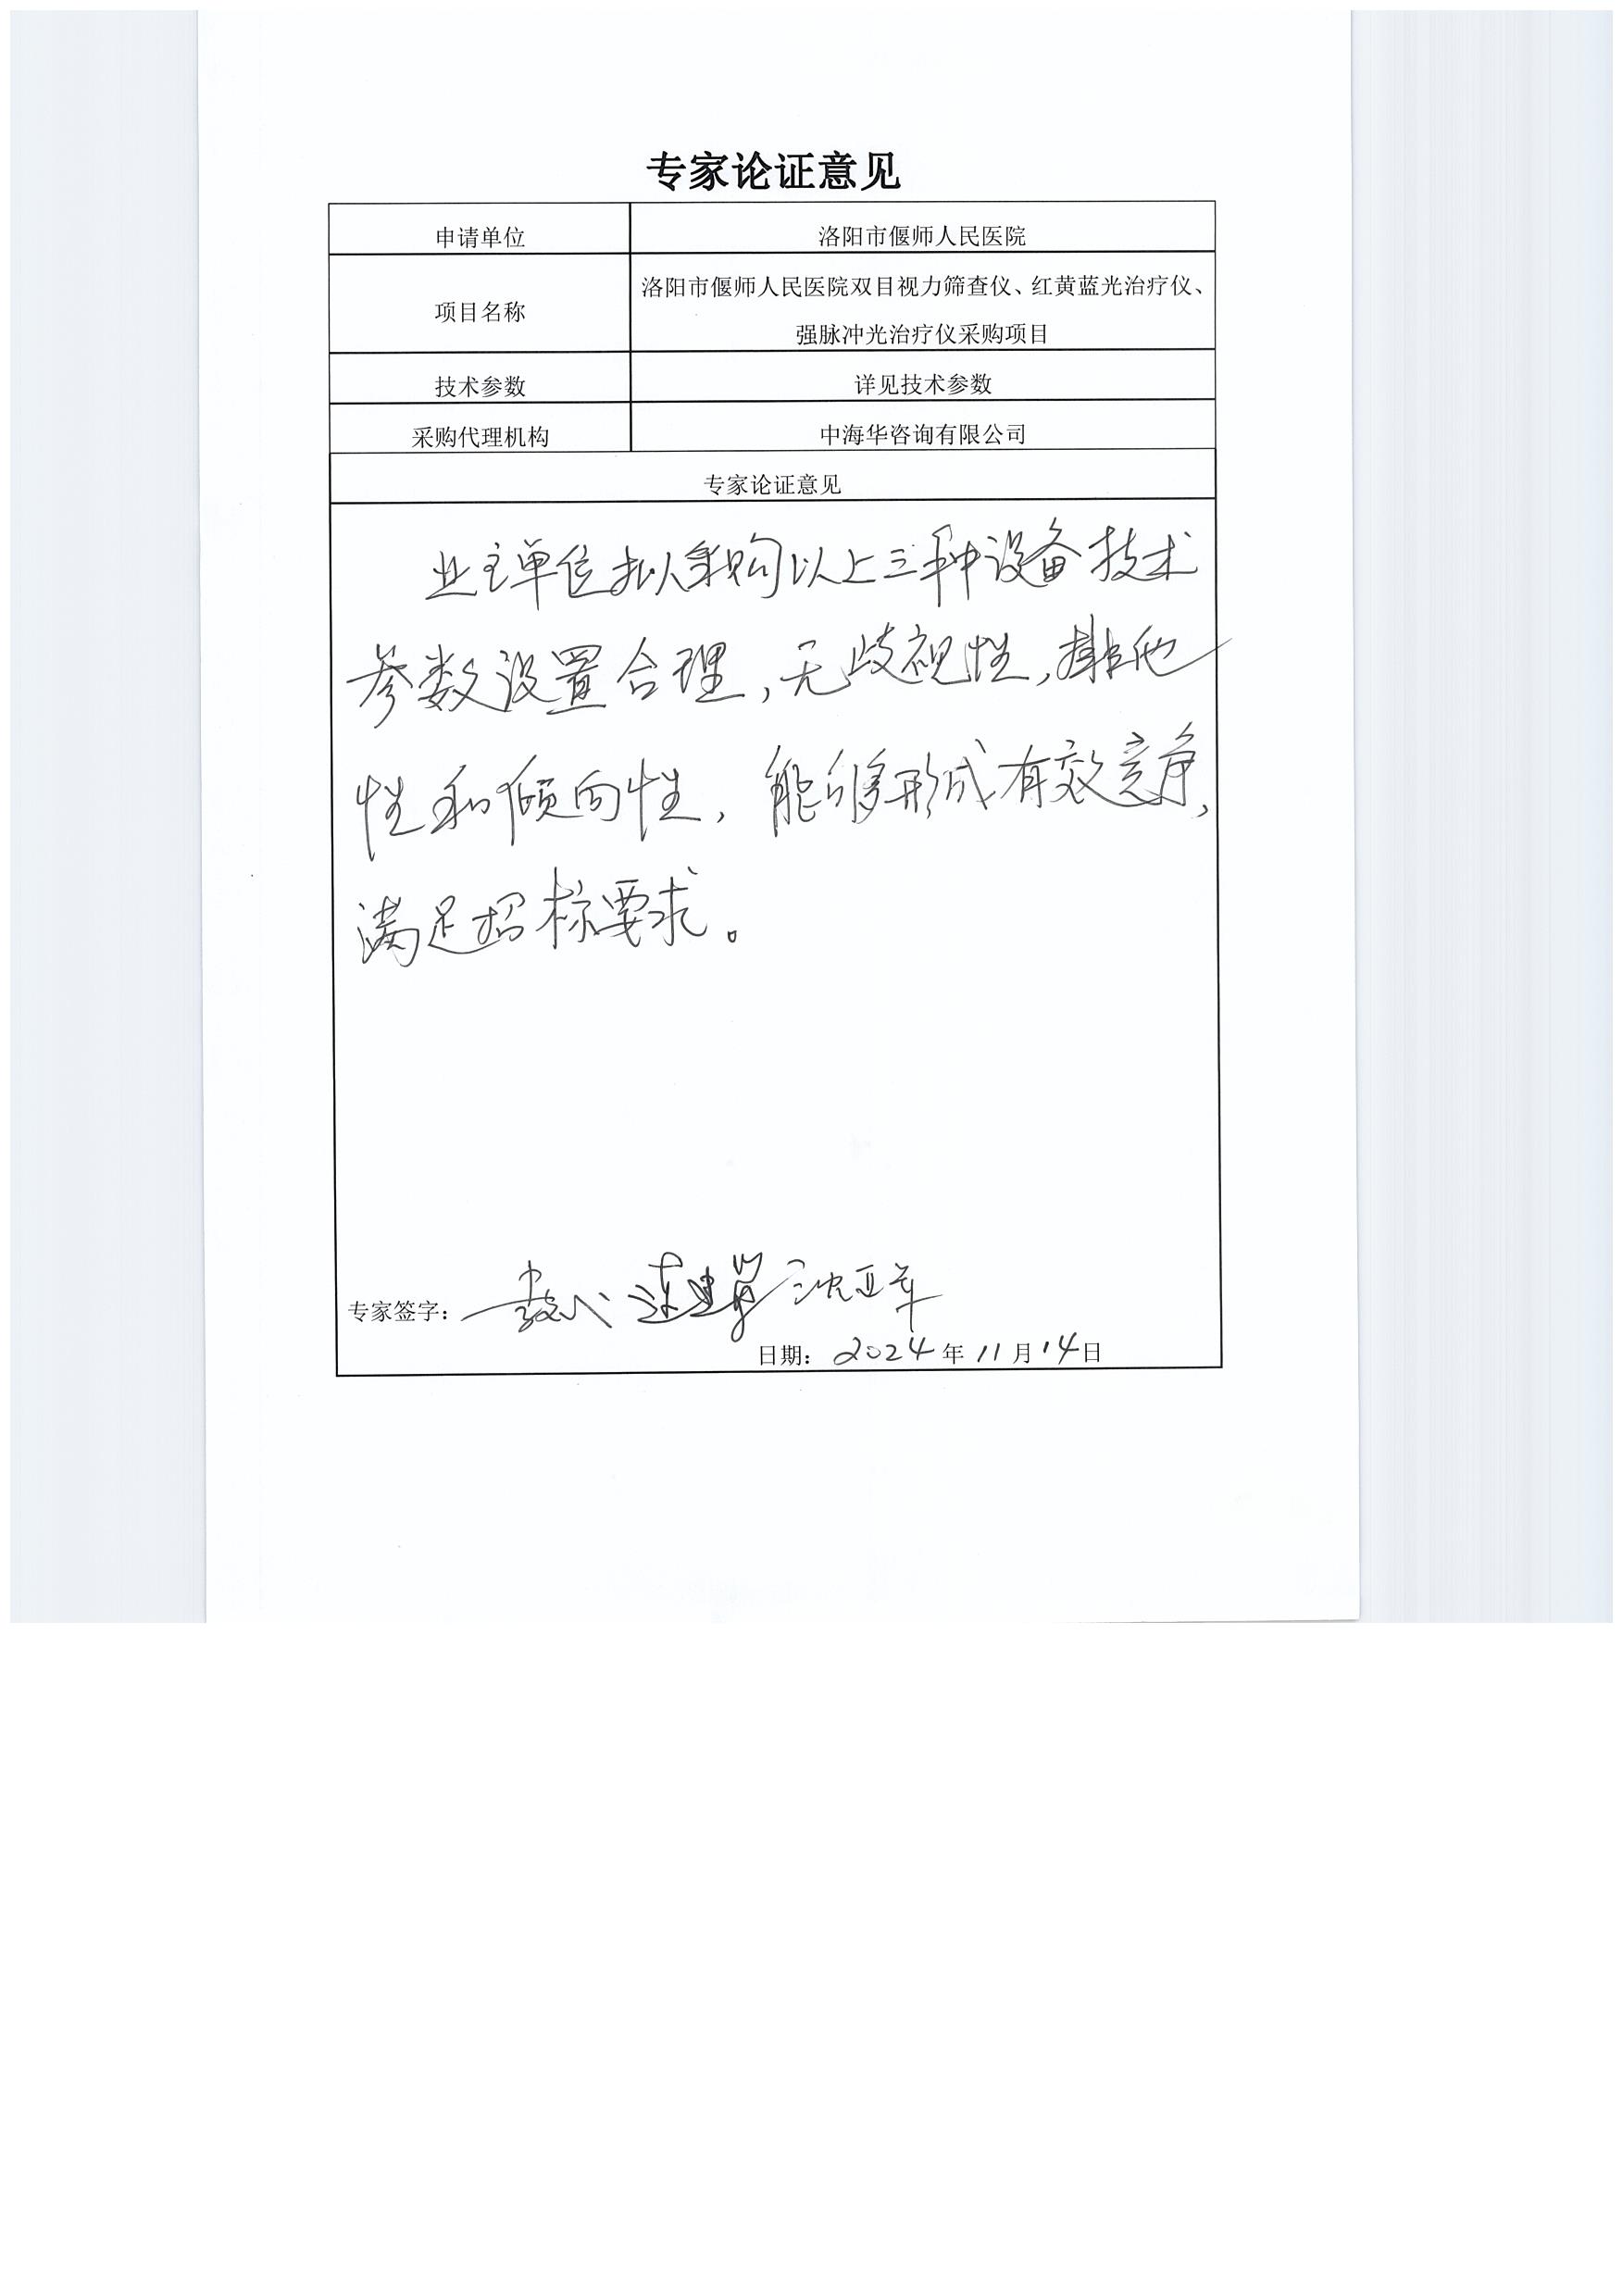 专家论证意见
申请单位 洛阳市偃师人民医院
项目名称 洛阳市偃师人民医院双目视力筛查仪、红黄蓝光治疗仪、
强脉冲光治疗仪采购项目
技术参数 详见技术参数
采购代理机构 中海华咨询有限公司
专家论证意见
业主单位拟采购以上三种设备技术
参数设置合理，无歧视性，排他
性和倾向性，能够形成有效竞争，
满足招标要求。
专家签字：
日期：2024年11月14日